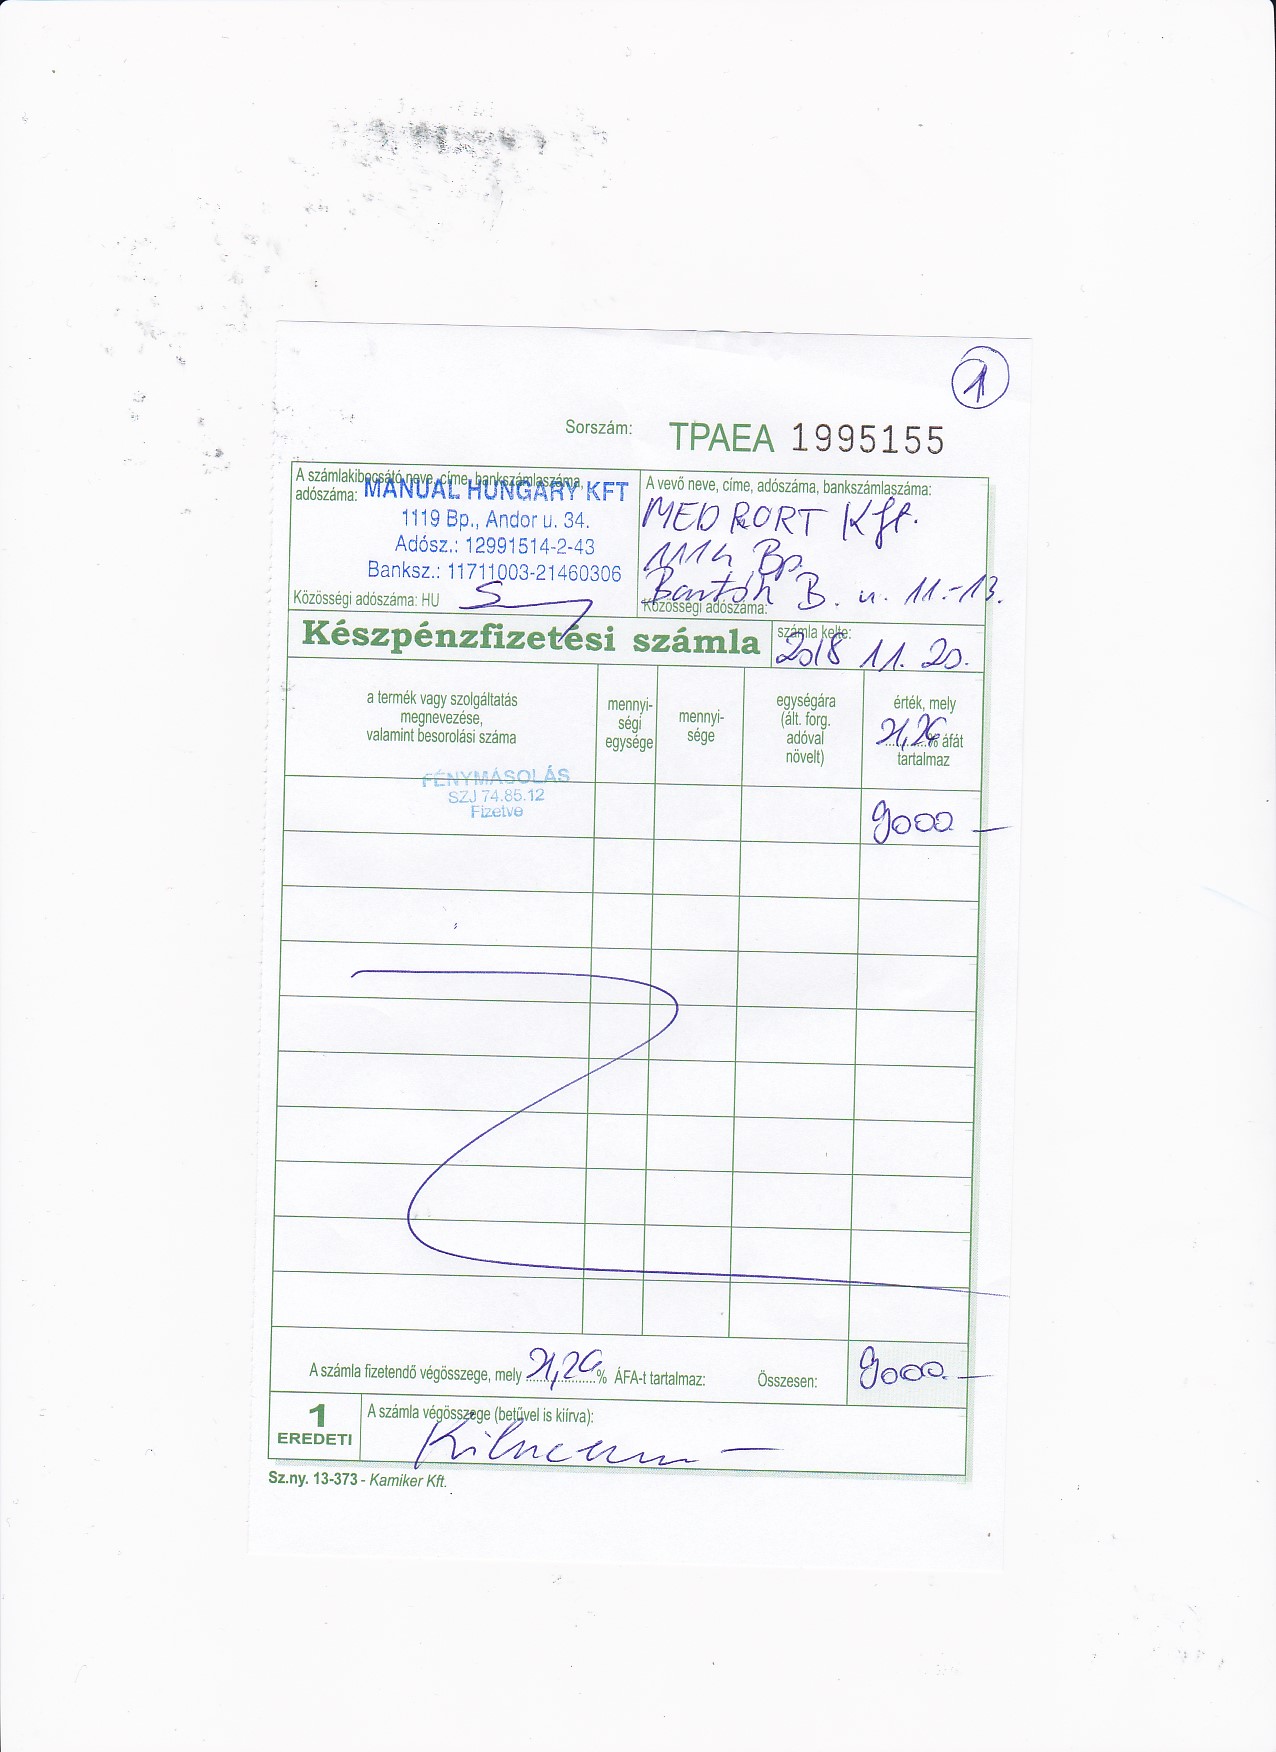 1
Sorszám: TPAEA 1995155
A számlakibocsátó neve, címe, bankszámlaszáma,
adószáma:
MANUAL HUNGARY KFT
1119 Bp., Andor u. 34.
Adósz.: 12991514-2-43
Banksz.: 11711003-21460306
Közösségi adószáma: HU
A vevő neve, címe, adószáma, bankszámlaszáma:
MED PORT Kft.
1114 Bp.
Bartók B. u. 11.-13.
Közösségi adószáma:
Készpénzfizetési számla
számla kelte:
2018 11. 20.
a termék vagy szolgáltatás
megnevezése,
valamint besorolási száma
mennyi-
ségi
egysége
mennyi-
sége
egységára
(ált. forg.
adóval
növelt)
érték, mely
21,26 % áfát
tartalmaz
FÉNYMÁSOLÁS
SZJ 74.85.12
Fizetve
9000 —
A számla fizetendő végösszege, mely 21,26 % ÁFA-t tartalmaz: Összesen: 9000.—
1
EREDETI
A számla végösszege (betűvel is kiírva):
Kilencezer —
Sz.ny. 13-373 - Kamiker Kft.